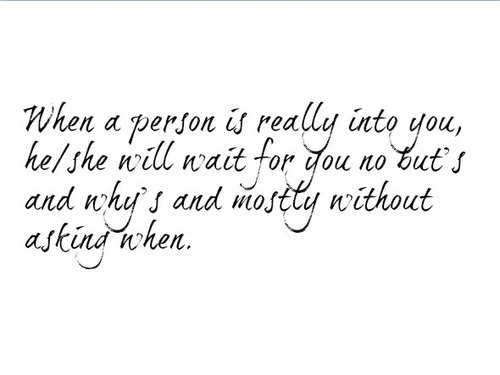 When a person is really into you,
he/she will wait for you no but's
and why's and mostly without
asking when.